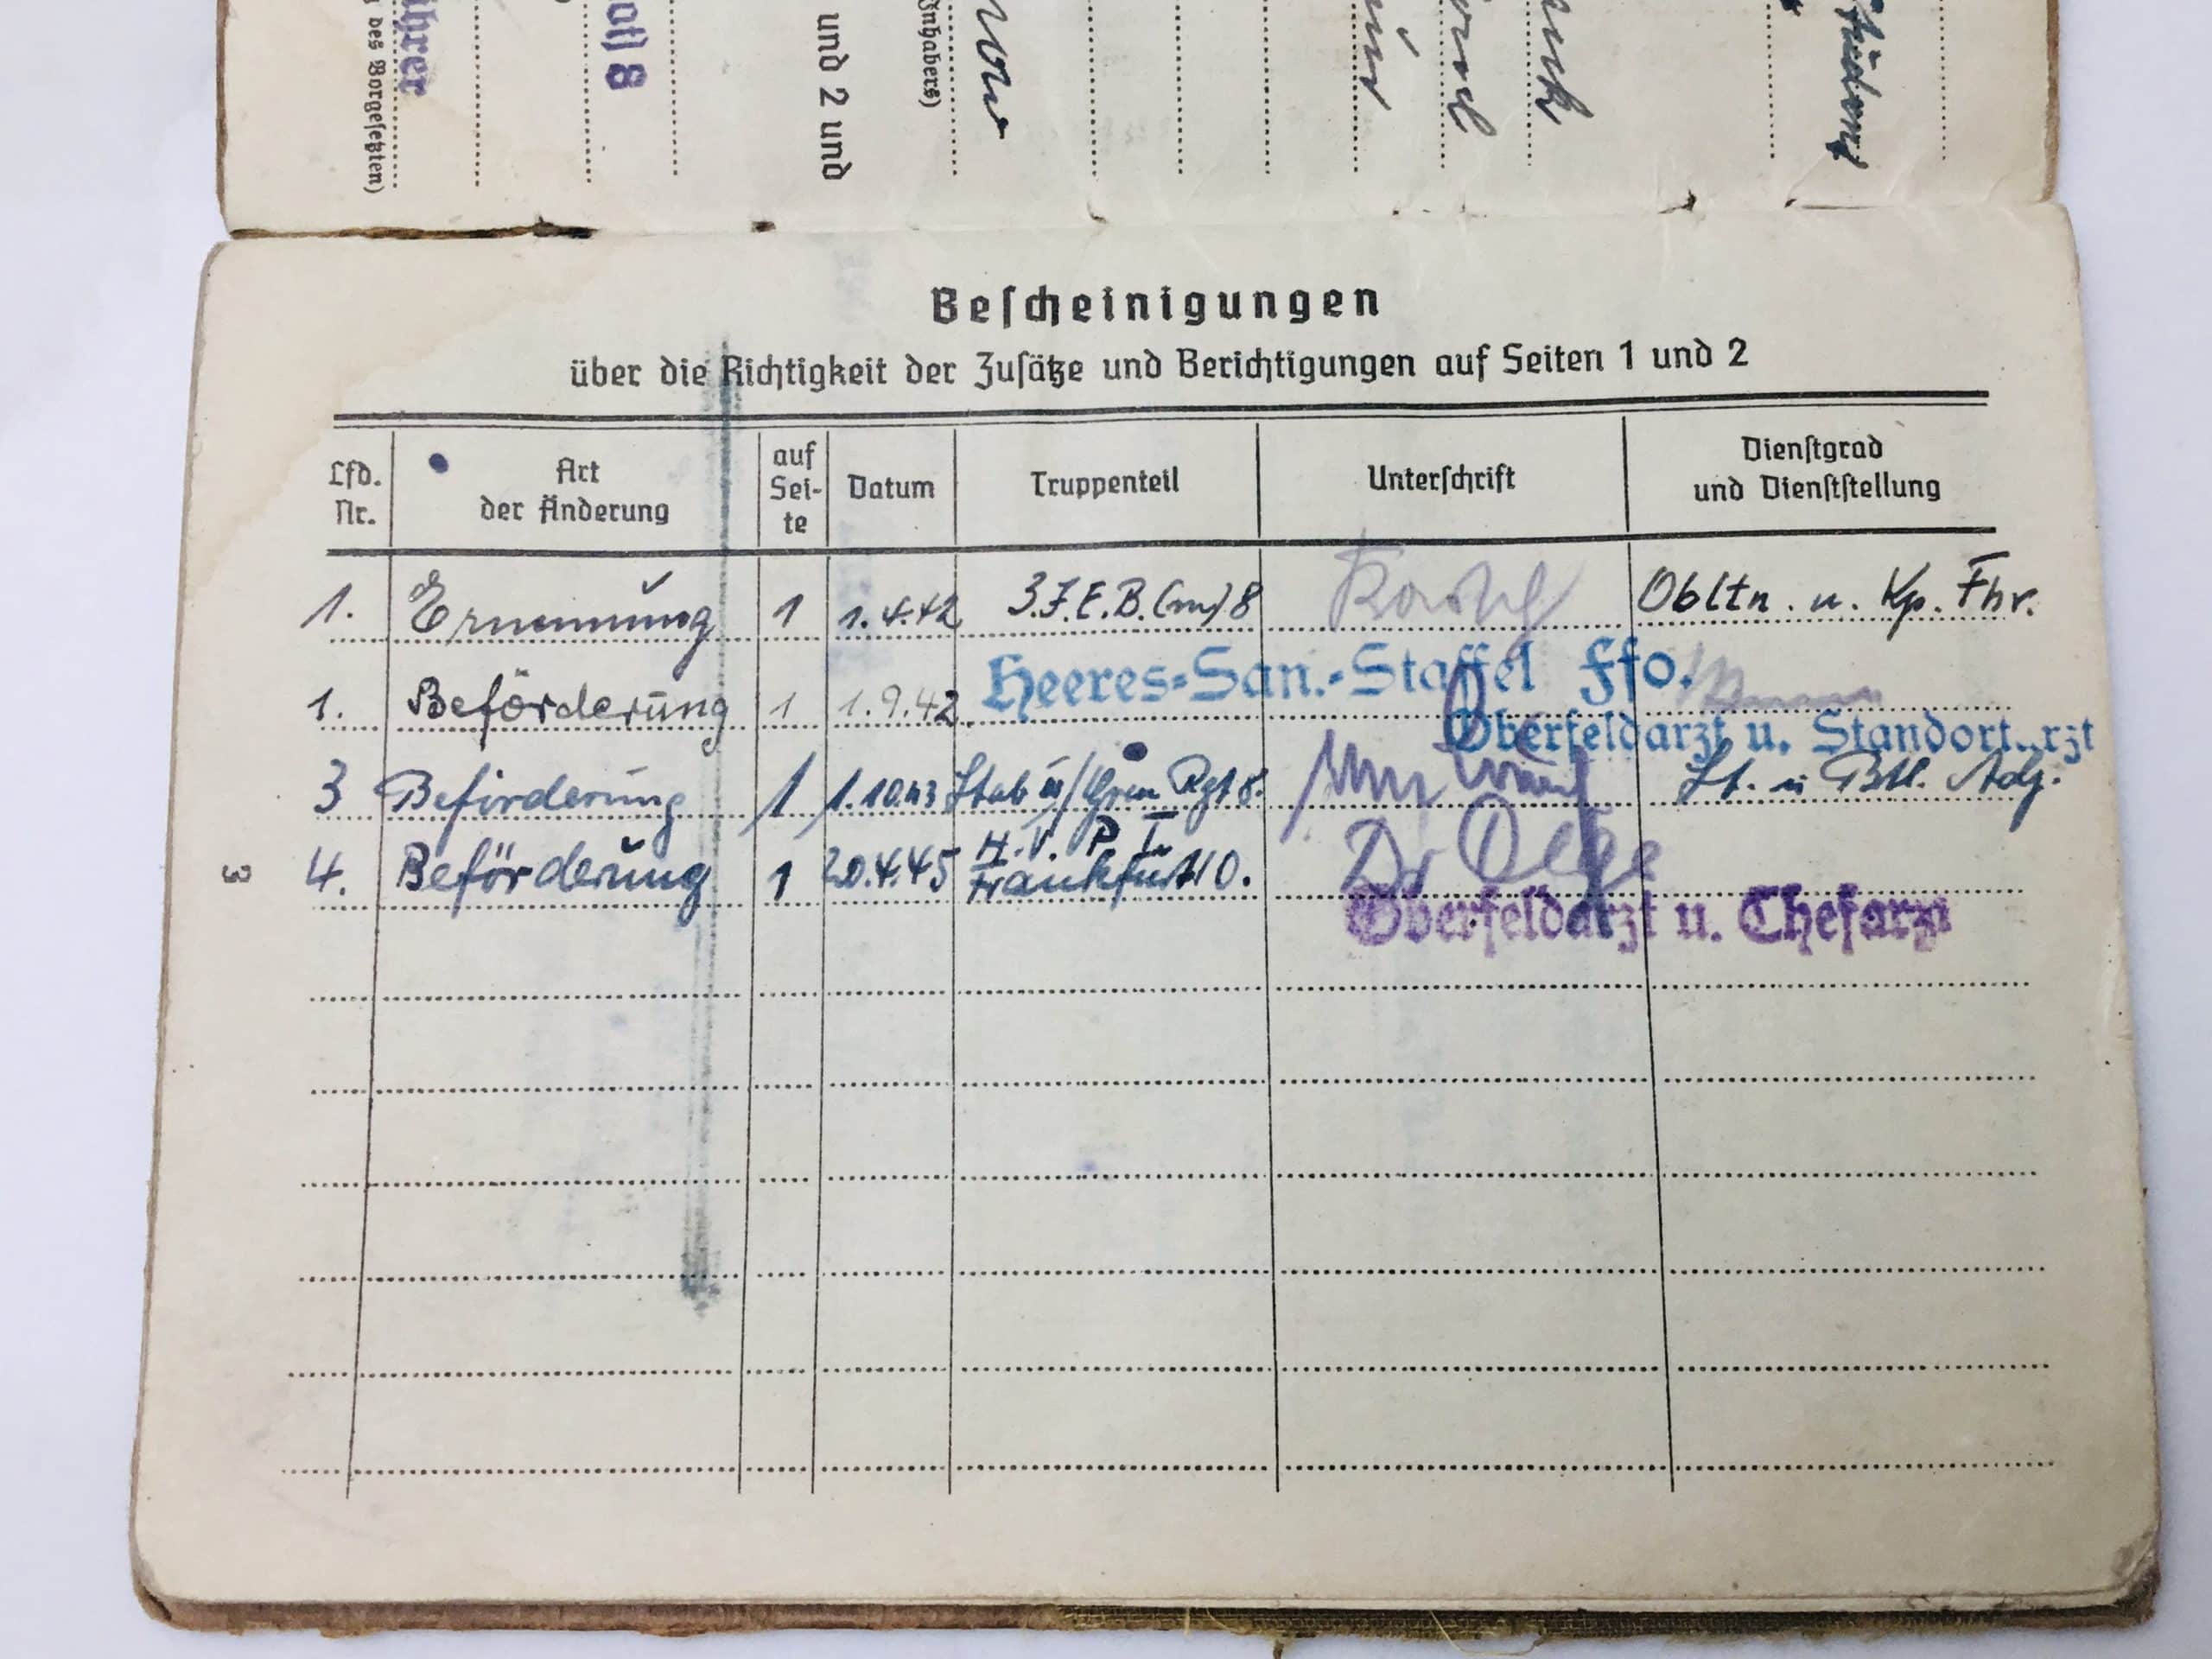 ührer
des Vorgesetzten)
atl 8
und 2 und
Inhabers)
Bescheinigungen
über die Richtigkeit der Zusätze und Berichtigungen auf Seiten 1 und 2
Lfd. Nr.
Art der Änderung
auf Sei- te
Datum
Truppenteil
Unterschrift
Dienstgrad und Dienststellung
1. Ernennung 1 1.4.42 3.J.E.B.(m)8 Obltn. u. Kp. Fhr.
Heeres-San.-Staffel Ffo.
1. Beförderung 1 1.9.42.
Oberfeldarzt u. Standort..rzt
3 Beförderung 1 1.10.43 Stab III/Gren Rgt 8. Lt. u Btl. Adj.
H. V. P I.
4. Beförderung 1 20.4.45 Frankfurt/O. Dr
Oberfeldarzt u. Chefarzt
3